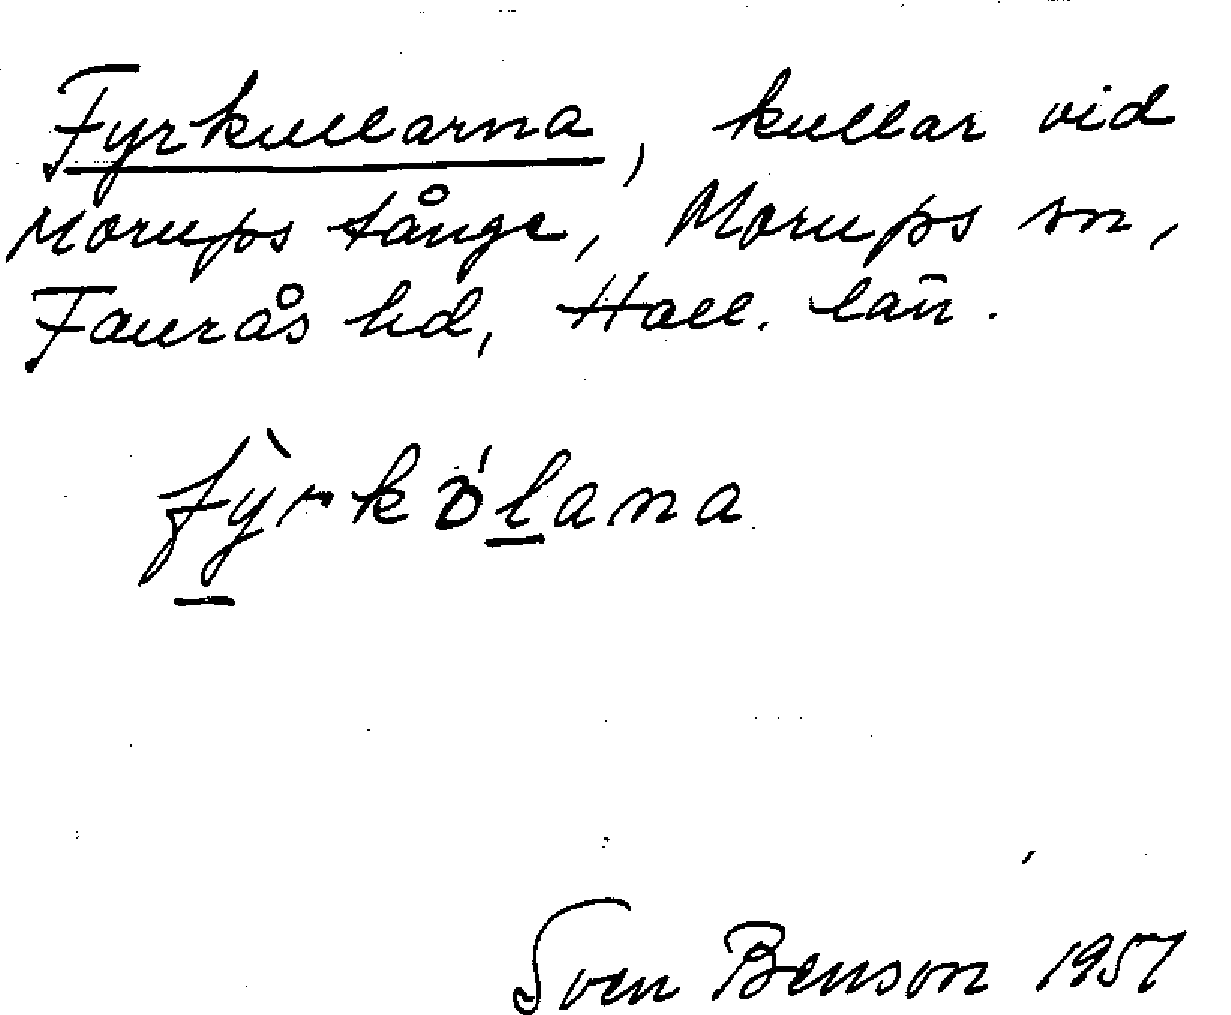 Fyrkullarna, kullar vid
Morups tånge, Morups sn,
Faurås hd, Hall. län.
fỳrkölana
Sven Benson 1951